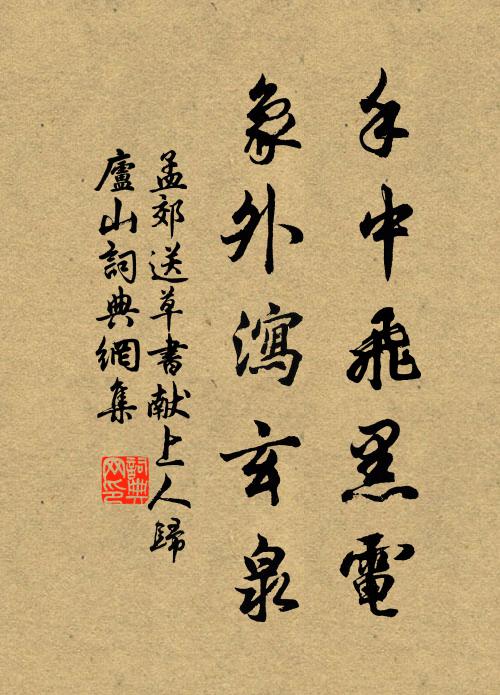 手中飛黑電
象外瀉玄泉
孟郊送草書献上人歸
廬山詞典網集
詞典网印